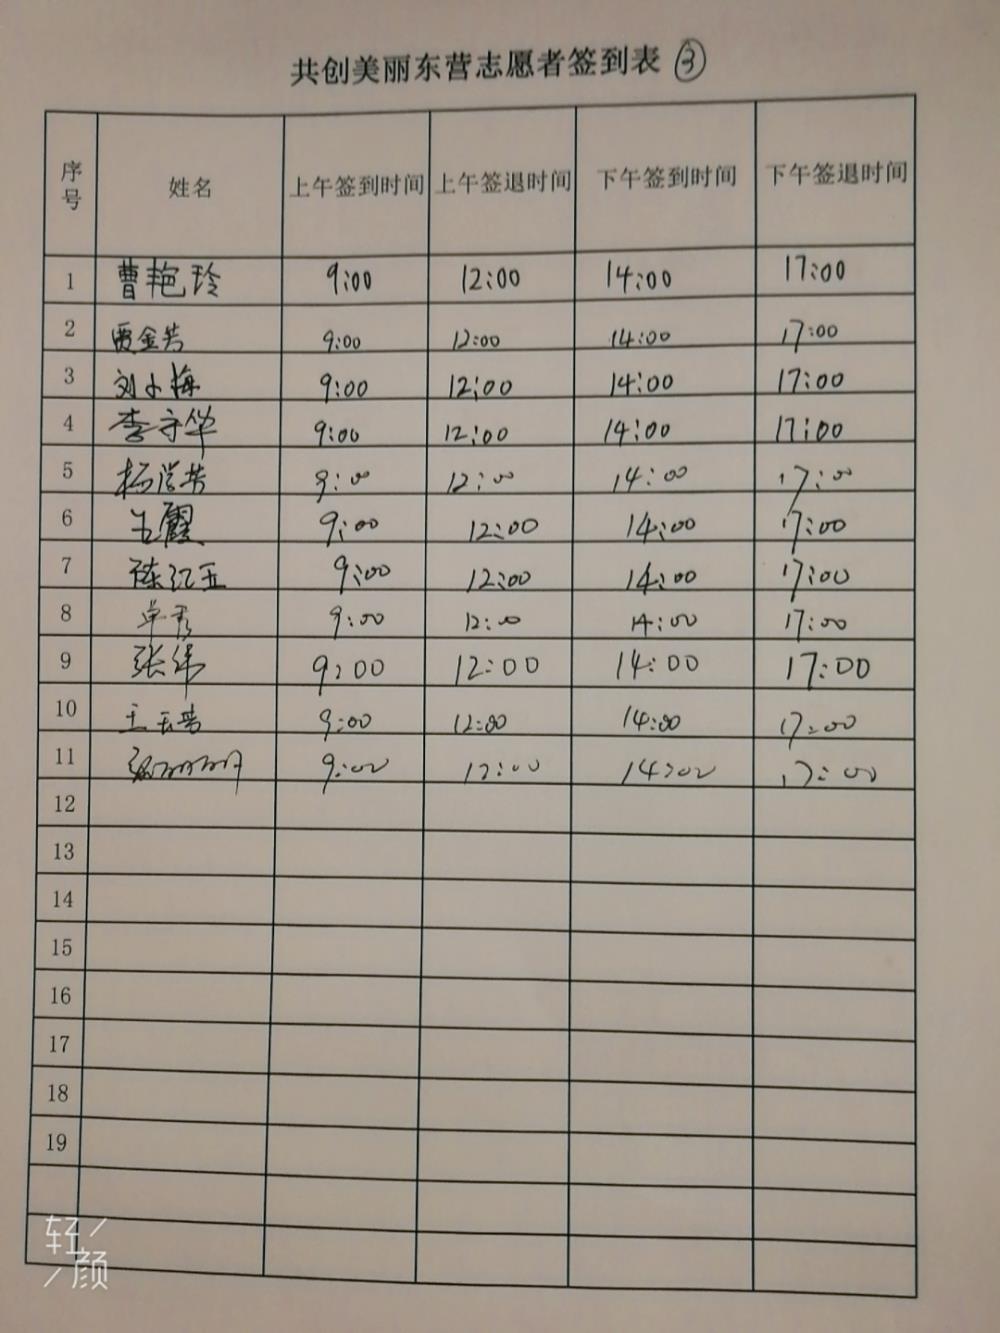 共创美丽东营志愿者签到表 ③
序号 姓名 上午签到时间 上午签退时间 下午签到时间 下午签退时间
1 曹艳玲 9:00 12:00 14:00 17:00
2 贾金芳 9:00 12:00 14:00 17:00
3 刘小梅 9:00 12:00 14:00 17:00
4 李守华 9:00 12:00 14:00 17:00
5 杨学芳 9:00 12:00 14:00 17:00
6 王霞 9:00 12:00 14:00 17:00
7 陈江玉 9:00 12:00 14:00 17:00
8 单秀 9:00 12:00 14:00 17:00
9 张伟 9:00 12:00 14:00 17:00
10 王玉芳 9:00 12:00 14:00 17:00
11 9:00 12:00 14:00 17:00
12
13
14
15
16
17
18
19
轻颜